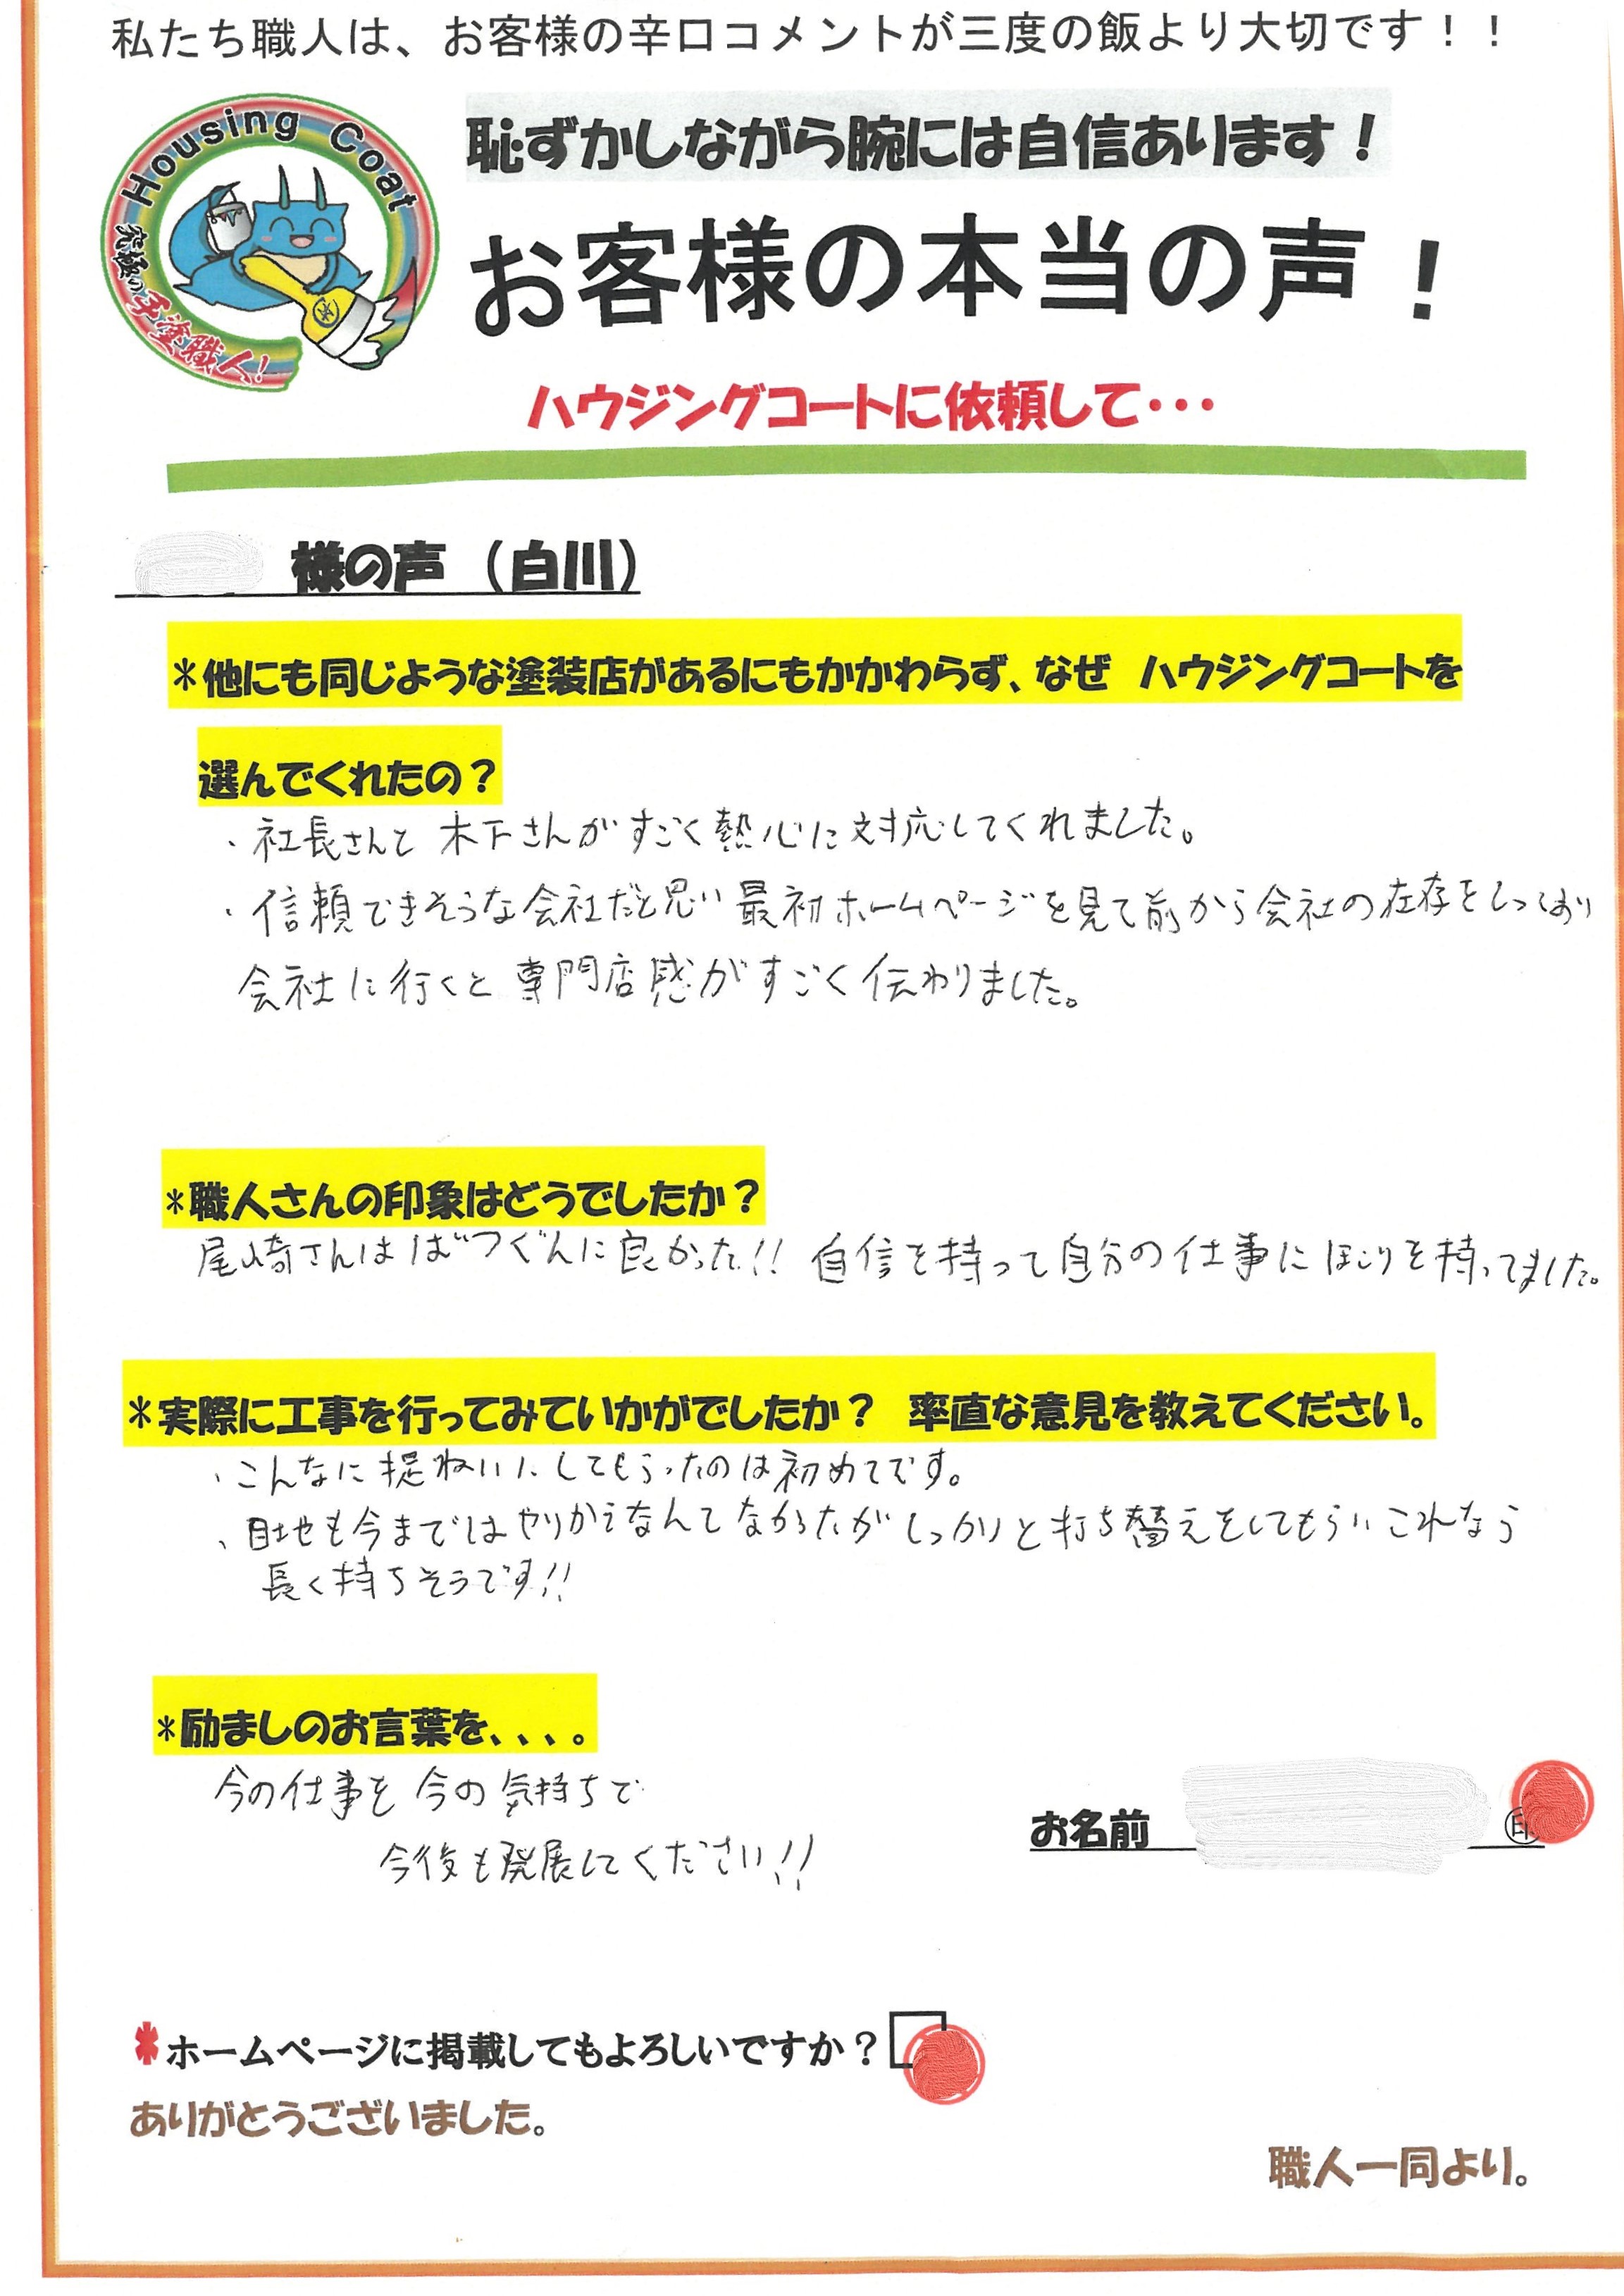 私たち職人は、お客様の辛口コメントが三度の飯より大切です！！
Housing Coat
究極の手塗職人！
恥ずかしながら腕には自信あります！
お客様の本当の声！
ハウジングコートに依頼して・・・
様の声（白川）
＊他にも同じような塗装店があるにもかかわらず、なぜ ハウジングコートを
選んでくれたの？
・社長さんと 木下さんがすごく熱心に対応してくれました。
・信頼できそうな会社だと思い最初ホームページを見て前から会社の在存をしっており
会社に行くと専門店感がすごく伝わりました。
＊職人さんの印象はどうでしたか？
尾崎さんはばつぐんに良かった!! 自信を持って自分の仕事にほこりを持ってました。
＊実際に工事を行ってみていかがでしたか？ 率直な意見を教えてください。
・こんなに提ねいにしてもらったのは初めてです。
・目地も今まではやりかえなんてなかったがしっかりと打ち替えをしてもらいこれなら
長く持ちそうです!!
＊励ましのお言葉を、、、。
今の仕事を今の気持ちで
今後も発展してください!!
お名前 ㊞
＊ホームページに掲載してもよろしいですか？□
ありがとうございました。
職人一同より。